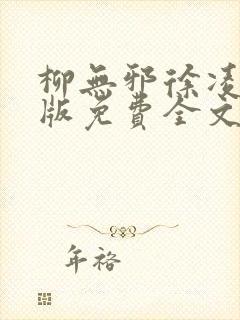 柳無邪徐凌
版免費全文
年裕